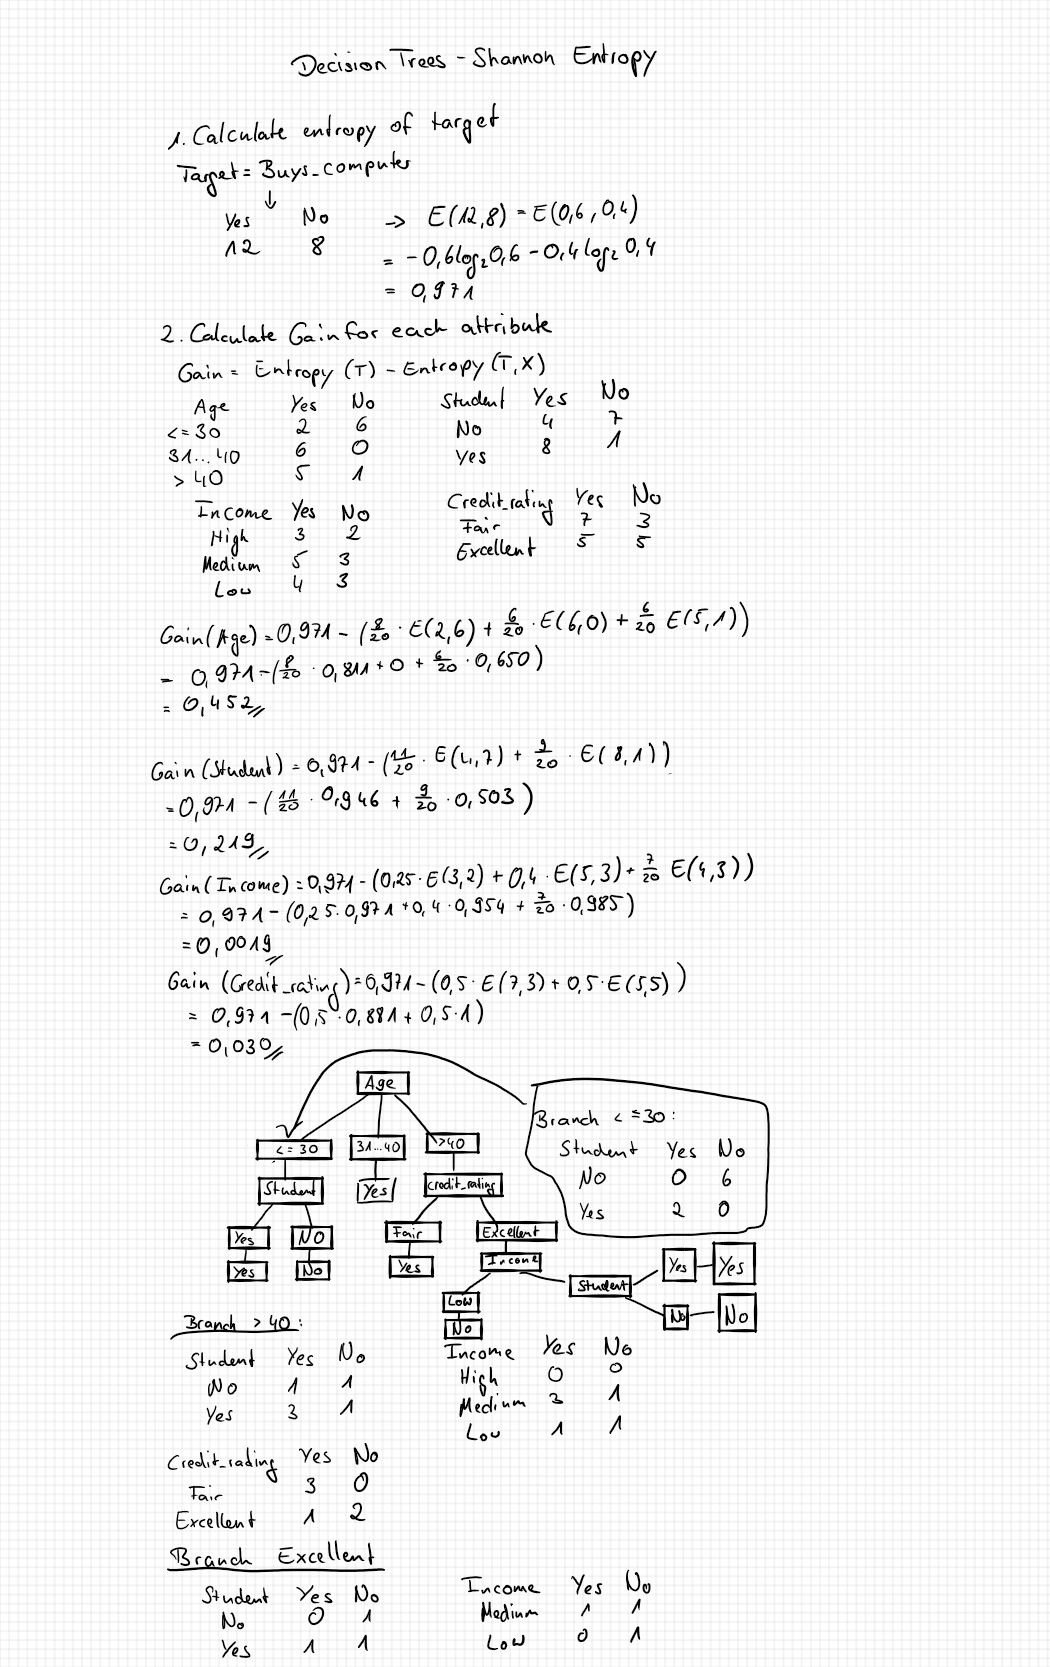 Decision Trees - Shannon Entropy
1. Calculate entropy of target
Target = Buys_computer
↓
Yes No → E(12,8) = E(0,6, 0,4)
12 8 = -0,6 log₂ 0,6 - 0,4 log₂ 0,4
= 0,971
2. Calculate Gain for each attribute
Gain = Entropy (T) - Entropy (T,X)
Age Yes No
<=30 2 6
31...40 6 0
> 40 5 1
Student Yes No
No 4 7
Yes 8 1
Income Yes No
High 3 2
Medium 5 3
Low 4 3
Credit_rating Yes No
Fair 7 3
Excellent 5 5
Gain(Age) = 0,971 - (8/20 · E(2,6) + 6/20 · E(6,0) + 6/20 E(5,1))
= 0,971 - (8/20 · 0,811 + 0 + 6/20 · 0,650)
= 0,452
Gain (Student) = 0,971 - (11/20 · E(4,7) + 9/20 · E(8,1))
= 0,971 - (11/20 · 0,946 + 9/20 · 0,503)
= 0,219
Gain(Income) = 0,971 - (0,25 · E(3,2) + 0,4 · E(5,3) + 7/20 E(4,3))
= 0,971 - (0,25 · 0,971 + 0,4 · 0,954 + 7/20 · 0,985)
= 0,0019
Gain (Credit_rating) = 0,971 - (0,5 · E(7,3) + 0,5 · E(5,5))
= 0,971 - (0,5 · 0,881 + 0,5 · 1)
= 0,030
Age
<=30 31...40 >40
Student Yes Credit_rating
Yes No Fair Excellent
Yes No Yes Income
Low Student Yes Yes
No No No
Branch <=30:
Student Yes No
No 0 6
Yes 2 0
Branch > 40:
Student Yes No
No 1 1
Yes 3 1
Income Yes No
High 0 0
Medium 3 1
Low 1 1
Credit_rading Yes No
Fair 3 0
Excellent 1 2
Branch Excellent
Student Yes No
No 0 1
Yes 1 1
Income Yes No
Medium 1 1
Low 0 1